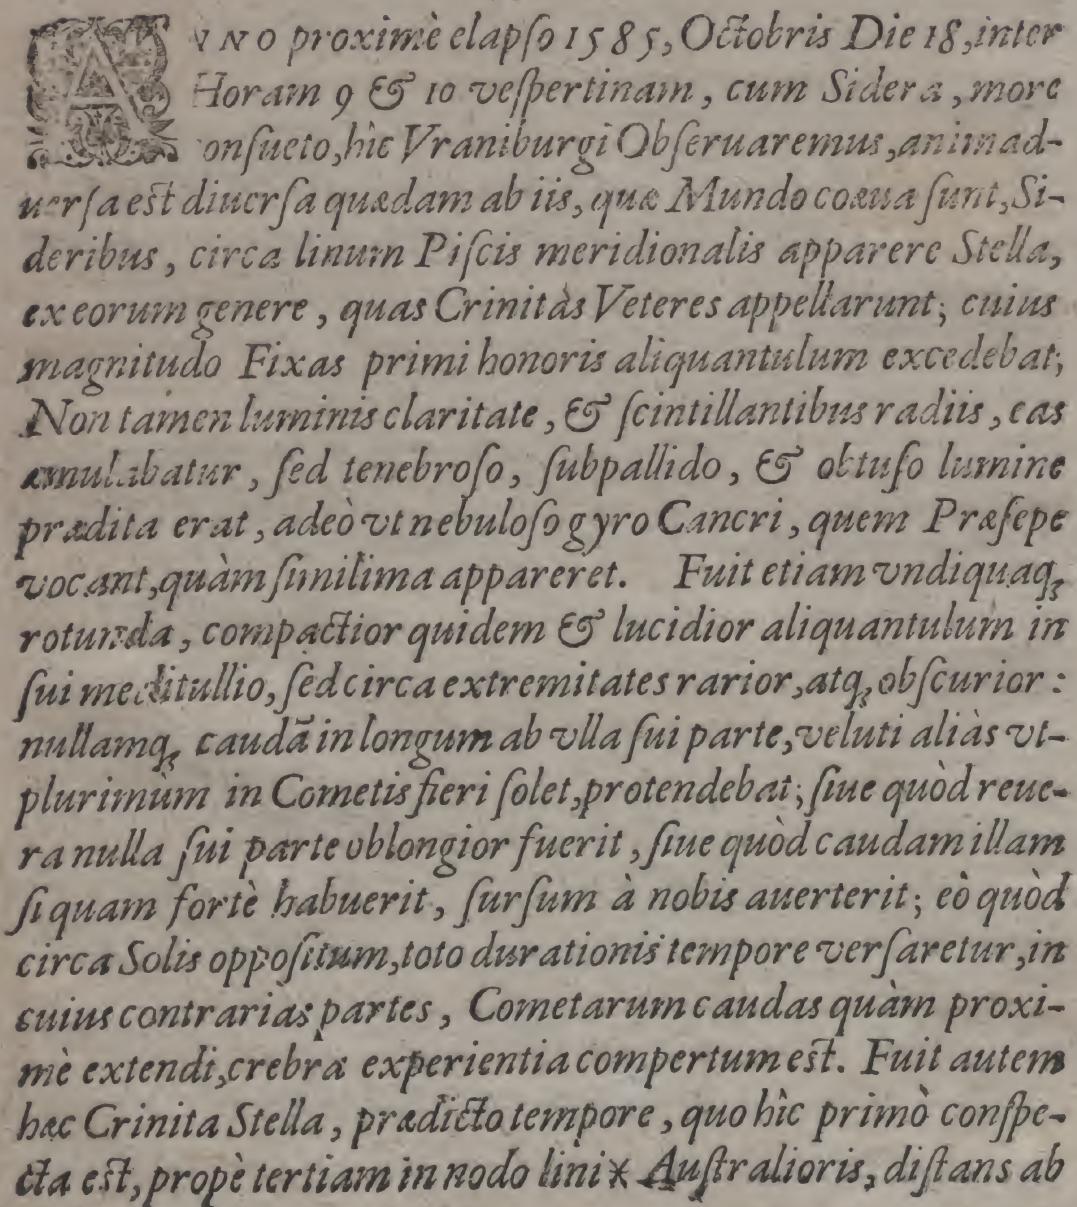 ANNO proximè elapſo 1585, Octobris Die 18, inter
Horam 9 & 10 veſpertinam, cum Sidera, more
conſueto, hîc Vraniburgi Obſeruaremus, animad-
uerſa eſt diuerſa quædam ab iis, quæ Mundo coæua ſunt, Si-
deribus, circa linum Piſcis meridionalis apparere Stella,
ex eorum genere, quas Crinitas Veteres appellarunt; cuius
magnitudo Fixas primi honoris aliquantulum excedebat;
Non tamen luminis claritate, & ſcintillantibus radiis, eas
æmulabatur, ſed tenebroſo, ſubpallido, & obtuſo lumine
prædita erat, adeò vt nebuloſo gyro Cancri, quem Præſepe
vocant, quàm ſimilima appareret. Fuit etiam vndiquaq;
rotunda, compactior quidem & lucidior aliquantulùm in
ſui meditullio, ſed circa extremitates rarior, atq; obſcurior:
nullamq; caudã in longum ab vlla ſui parte, veluti aliàs vt-
plurimùm in Cometis fieri ſolet, protendebat; ſiue quòd reue-
ra nulla ſui parte oblongior fuerit, ſiue quòd caudam illam
ſi quam fortè habuerit, ſurſum à nobis auerterit; eò quòd
circa Solis oppoſitum, toto durationis tempore verſaretur, in
cuius contrarias partes, Cometarum caudas quàm proxi-
mè extendi, crebra experientia compertum eſt. Fuit autem
hæc Crinita Stella, prædicto tempore, quo hîc primò conſpe-
cta eſt, propè tertiam in nodo lini ⚹ Auſtralioris, diſtans ab